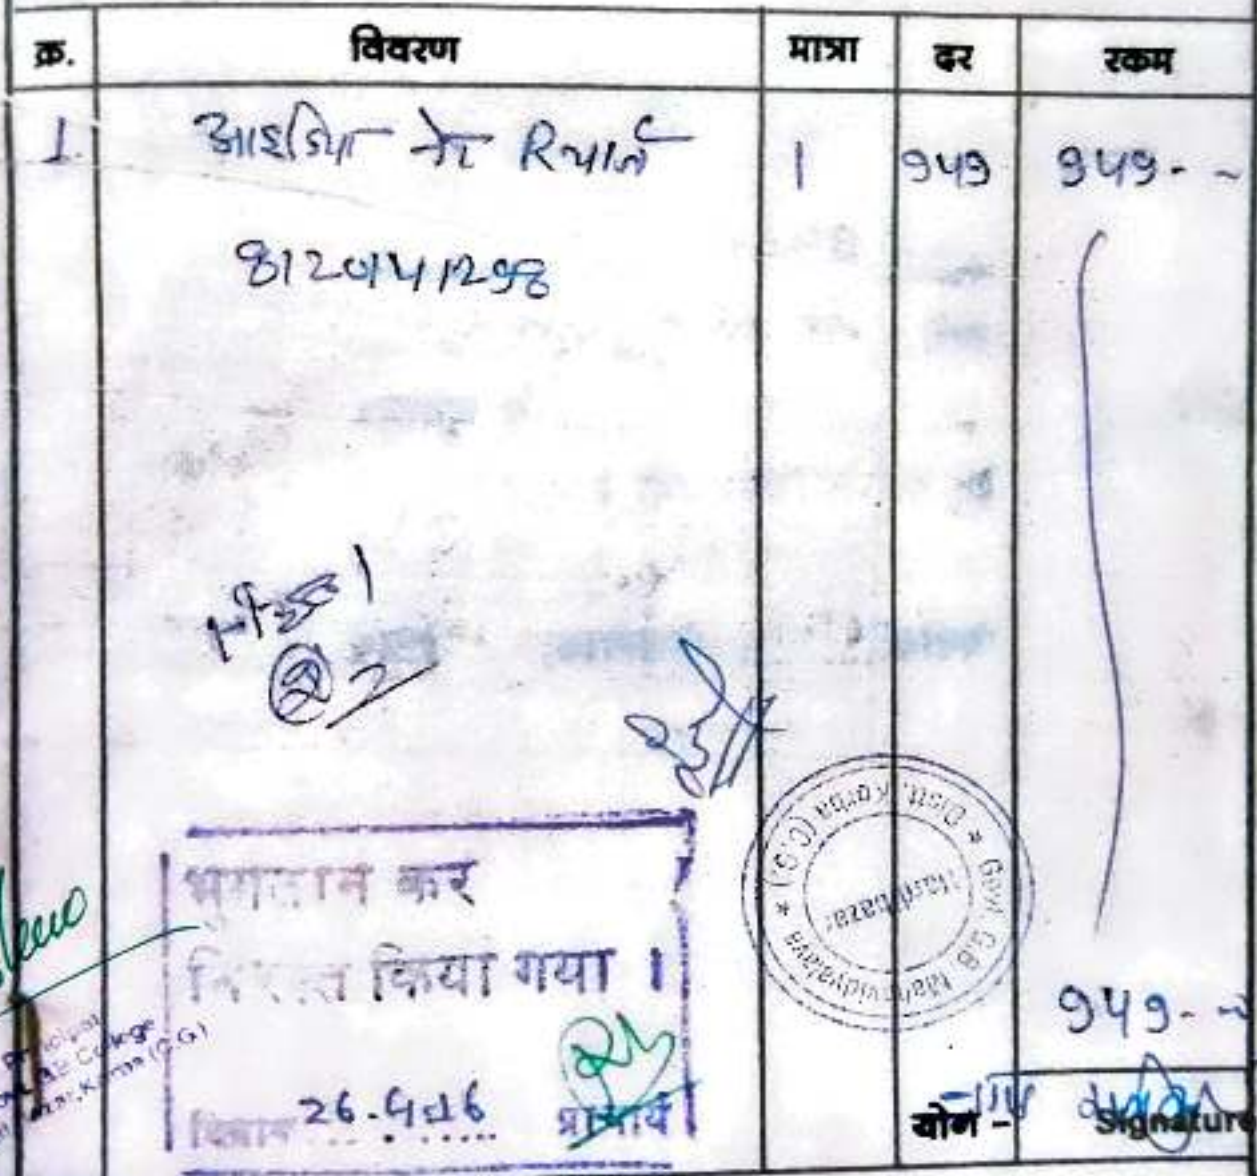 क्र. विवरण मात्रा दर रकम
1. आइडिया नेट Rचार्ज 1 949 949-
8120141298
2
भुगतान कर
निरस्त किया गया ।
दिनांक 26.4.16 प्राचार्य
Govt. G.B. Mahavidyalaya * Hardibazar * Distt. Korba (C.G.) *
Principal
College
Korba (C.G.)
949-
योग - Signature